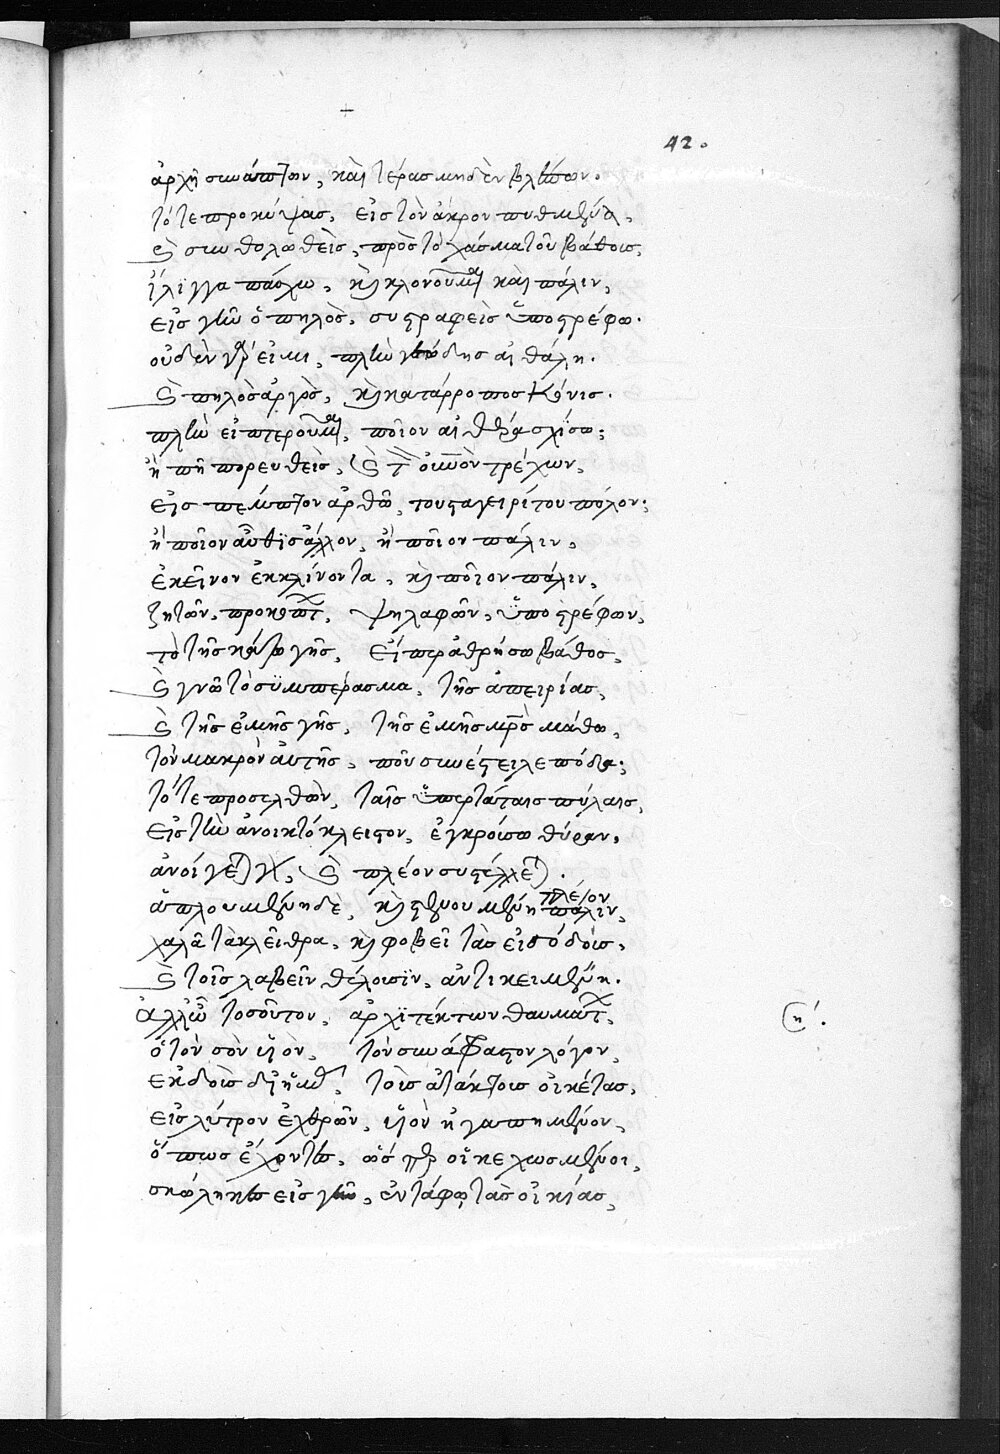 42.
ἀρχῇ συνάπτων, καὶ τέρας μηδὲν βλέπων.
τότε προκύψας, εἰς τὸν ἄκρον πυθμένα,
καὶ συνθολωθεὶς, πρὸς τὸ χάσμα τοῦ βάθους,
ἴλιγγα πάσχω, καὶ κλονοῦμαι καὶ πάλιν,
εἰς γῆν ὁ πηλὸς, συστραφεὶς ὑποστρέφω.
οὐδὲν γάρ εἰμι, πλὴν γεώδης αἰθάλη.
καὶ πηλὸς ἀργὸς, καὶ κατάρροπος κόνις.
πλὴν εἰ πτεροῦμαι, ποῖον αἰθέρα σχίσω;
ἢ πῆ πορευθεὶς, καὶ τὸν οὐρανὸν τρέχων,
εἰς πέμπτον ἀρθῶ, τοῦ σταγειρίτου πόλον;
ἢ ποῖον αὖθις ἄλλον, ἢ ποῖον πάλιν,
ἐκεῖνον ἐκκλίνοντα, καὶ ποῖον πάλιν,
ζητῶν, προκόπτων, ψηλαφῶν, ὑποστρέφων,
τὸ τῆς κάτω γῆς, εἴπερ ἀθρήσω βάθος,
καὶ γνῶ τὸ συμπέρασμα, τῆς ἀπειρίας,
καὶ τῆς ἐμῆς γῆς, τῆς ἐμῆς μητρὸς μάθω,
τὸν μακρὸν αὐτῆς, ποῦ συνέστειλε πόδα;
τότε προσελθὼν, ταῖς ὑπερτάταις πύλαις,
εἰς τὴν ἀνοικτόκλειστον, ἐγκρούσω θύραν,
ἀνοίγεται γὰρ, καὶ πλέον συστέλλεται.
ἁπλουμένη δὲ, καὶ στενουμένη πάλιν,
πλέον
χαλᾶ τὰ κλεῖθρα, καὶ φοβεῖ τὰς εἰσόδους,
καὶ τοῖς λαβεῖν θέλουσιν, ἀντικειμένη.
Ἀλλ' ὦ τοσοῦτον, ἀρχιτέκτων θαυμάτων,
η΄.
ὁ τὸν σὸν υἱὸν, τὸν συνάναρχον λόγον,
ἐκδοὺς δι' ἡμᾶς, τοὺς ἀτάκτους οἰκέτας,
εἰς λύτρον ἐχθρῶν, υἱὸν ἠγαπημένον,
ὅπως ἔχοντες, ὥσπερ οἱ κεχωσμένοι,
σκώληκες εἰς γῆν, ἐν τάφῳ τὰς οἰκίας,